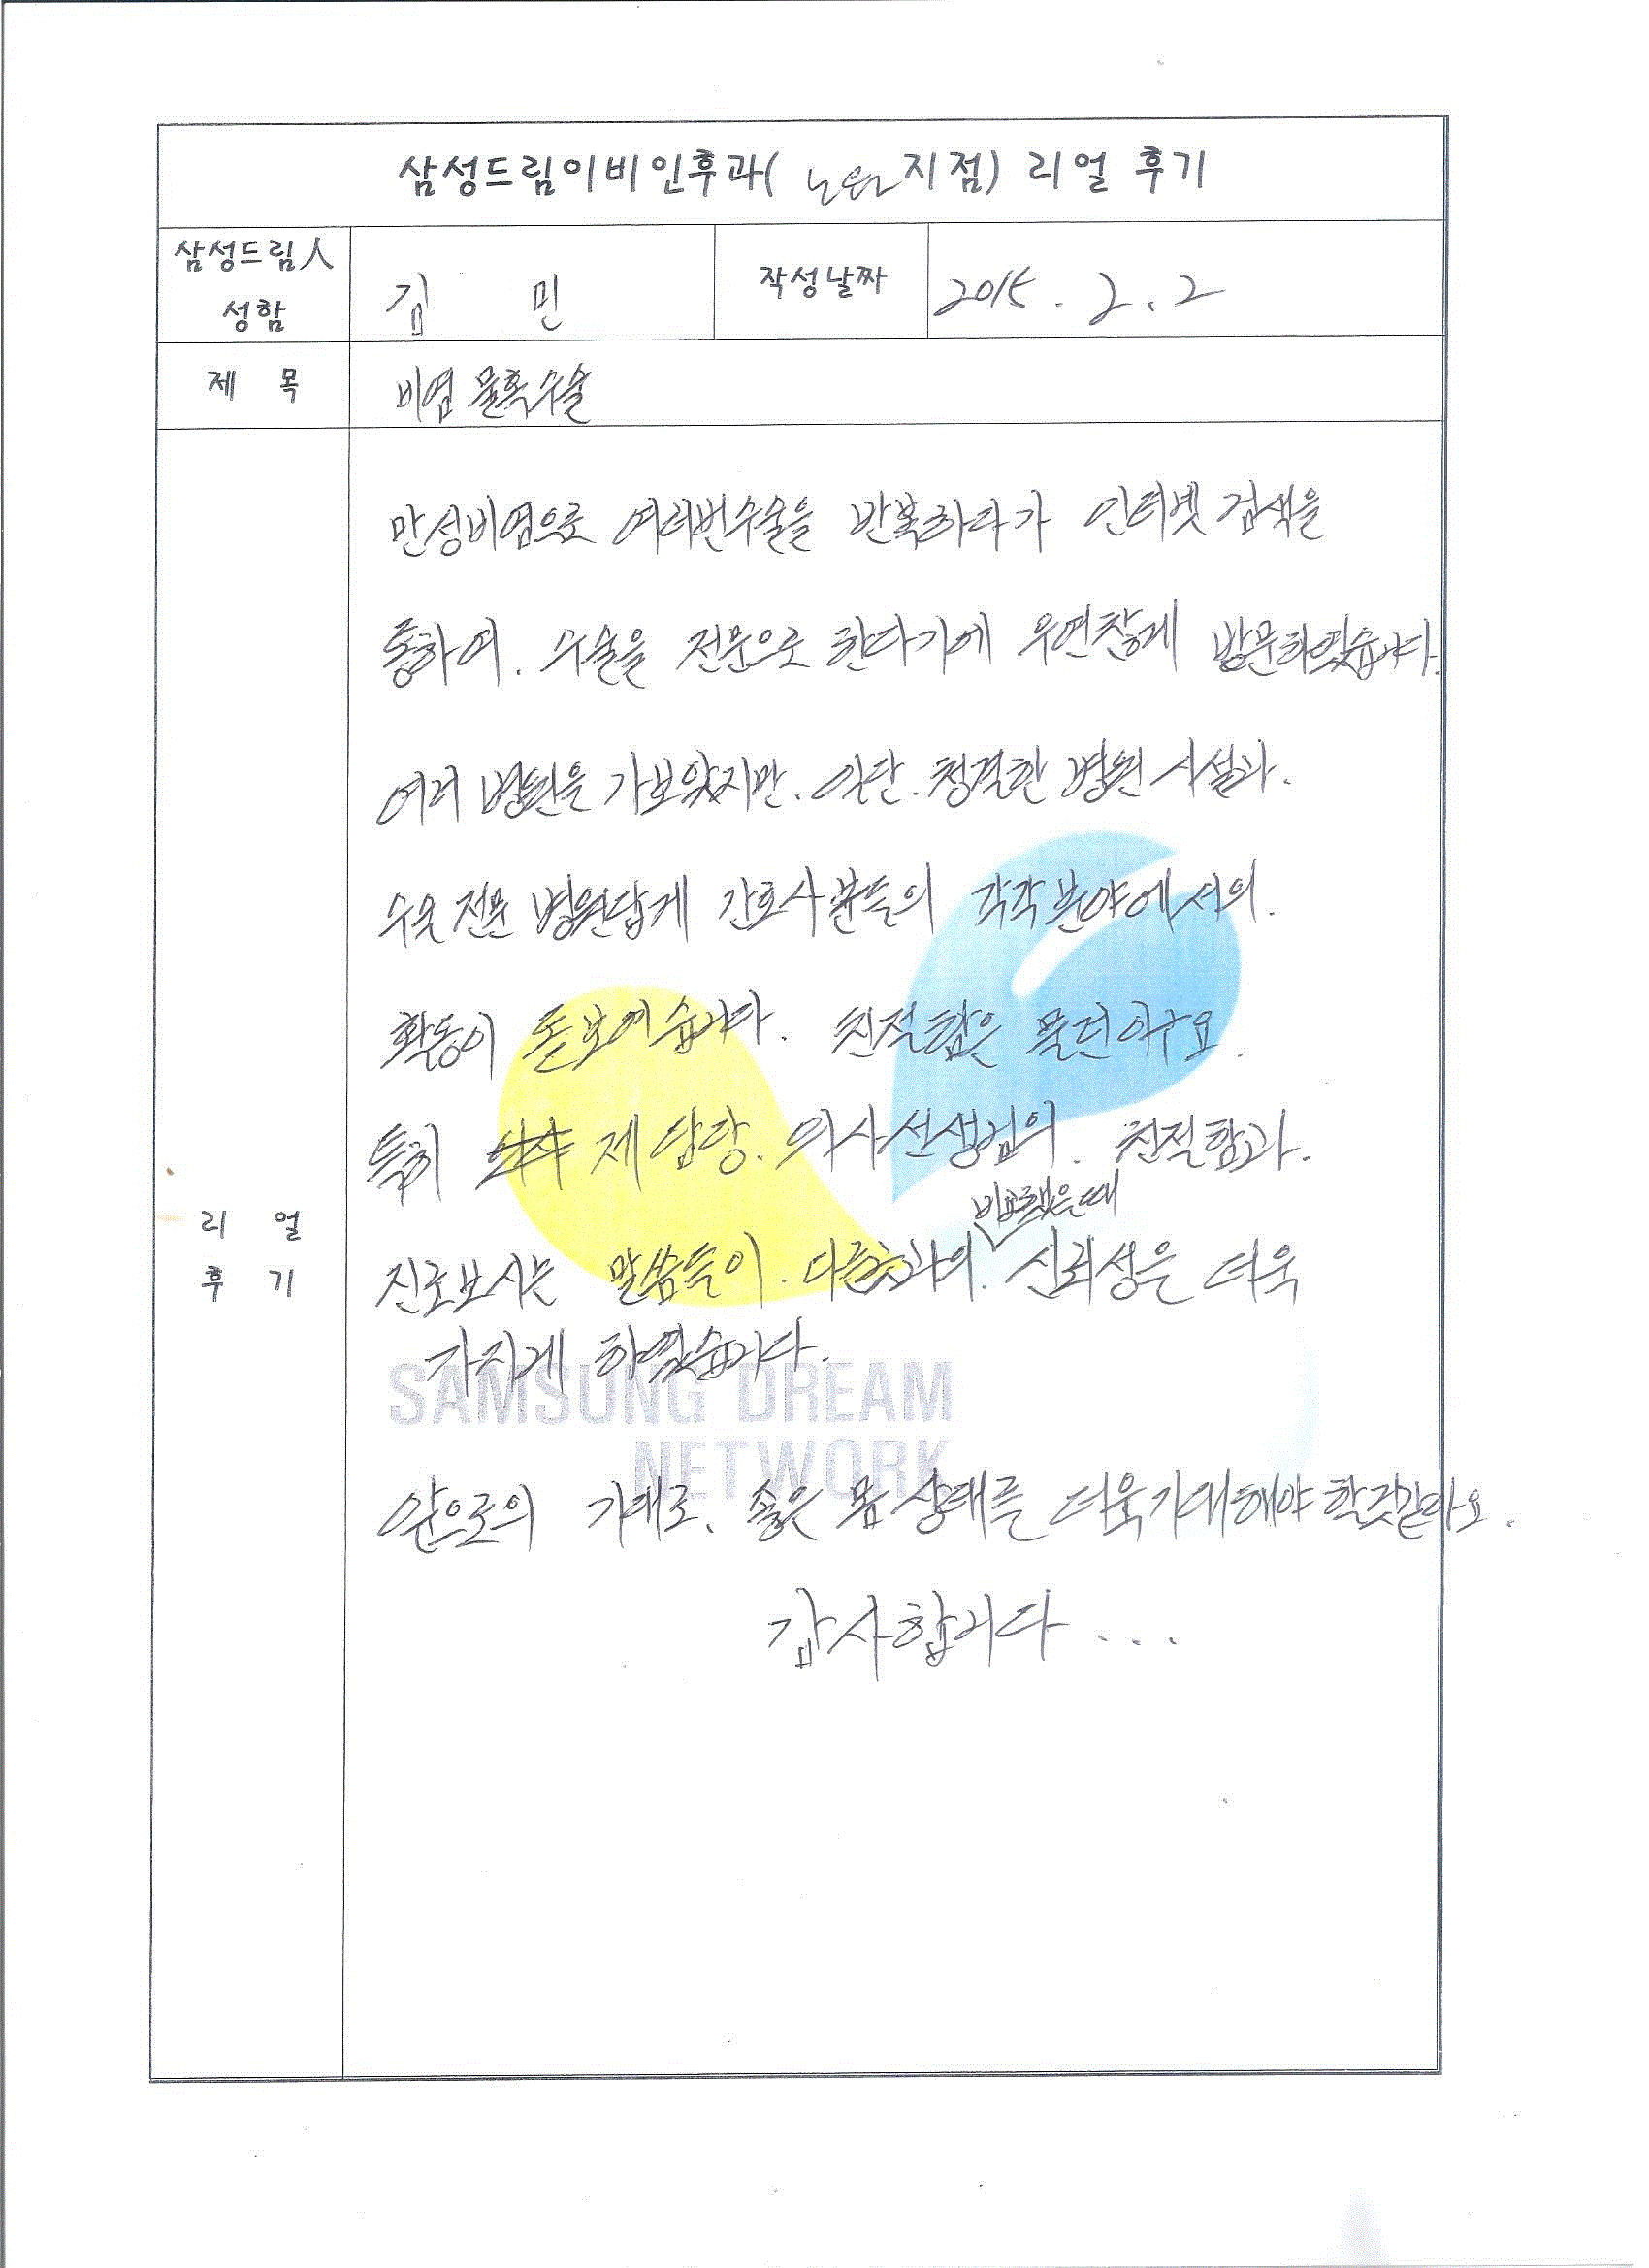 삼성드림이비인후과( 노원 지점) 리얼 후기
삼성드림人
성함
김 민
작성날짜
2015. 2. 2
제 목
비염 물혹수술
만성비염으로 여러번수술을 반복하다가 인터넷 검색을
통하여. 수술을 전문으로 한다기에 우연찮게 방문하였습니다.
여러 병원을 가보았지만. 일단. 청결한 병원 시설과.
수술 전문 병원답게 간호사분들의 각각분야에서의.
활동이 돋보여습니다. 친절함은 물런이구요.
특히 제 담당. 의사선생님의. 친절함과.
비교했을때
진료보시는 말씀들이. 다른과의. 신뢰성은 더욱
가지게 하였습니다.
리 얼
후 기
SAMSUNG DREAM
NETWORK
앞으로의 기대로. 좋은 몸 상태를 더욱기대해야 할것같아요.
감사합니다...